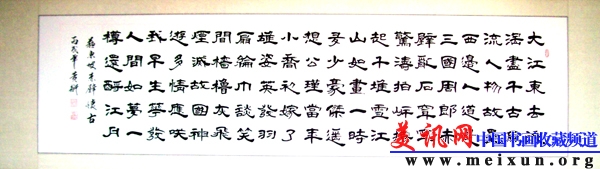 大江東去浪
淘盡千古風
流人物故壘
西邊人道是
三國周郎赤
壁亂石穿空
驚濤拍岸捲
起千堆雪江
山如畫一時
多少豪傑遙
想公瑾當年
小喬初嫁了
雄姿英發羽
扇綸巾談笑
間檣櫓灰飛
煙滅故國神
遊多情應咲
我早生華發
人間如夢一
樽還酹江月
蘇東坡赤壁懷古
丙戌年
美讯网 中国书画收藏频道
www.meixun.org